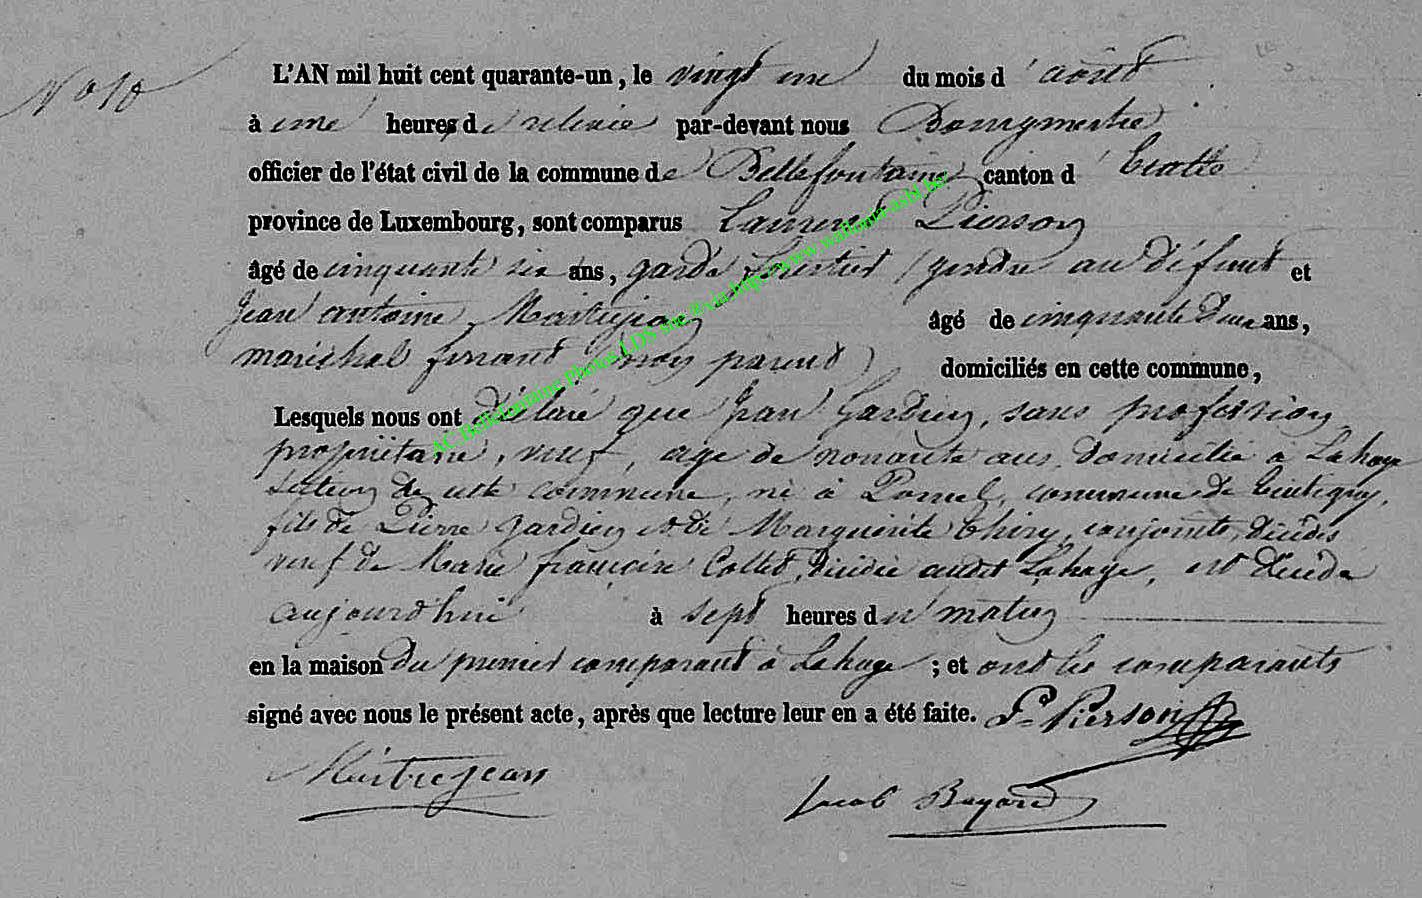 N° 10
L'AN mil huit cent quarante-un, le vingt un du mois d'août
à une heures de relevée par-devant nous Bourgmestre
officier de l'état civil de la commune de Bellefontaine canton d'Etalle
province de Luxembourg, sont comparus Laurent Pierson
âgé de cinquante six ans, garde forestier (gendre au défunt et
Jean antoine Maitrejean âgé de cinquante deux ans,
maréchal ferrant (non parent) domiciliés en cette commune,
Lesquels nous ont déclaré que Jean Gardien, sans profession
propriétaire, veuf, age de nonante ans, domicilié à Lahage
section de cette commune, né à commune de Tintigny,
fils de Pierre Gardien et de Marguerite Thiry, conjoints, décédés
veuf de Marie françoise Collet, décédée audit Lahage, est décédé
aujourd'hui à sept heures du matin
en la maison du premier comparant à Lahage ; et ont les comparants
signé avec nous le présent acte, après que lecture leur en a été faite. Pierson
Maitrejean
Jacob Bayard
AC Bellefontaine Photos LDS via http://www.wallonia-asbl.be/